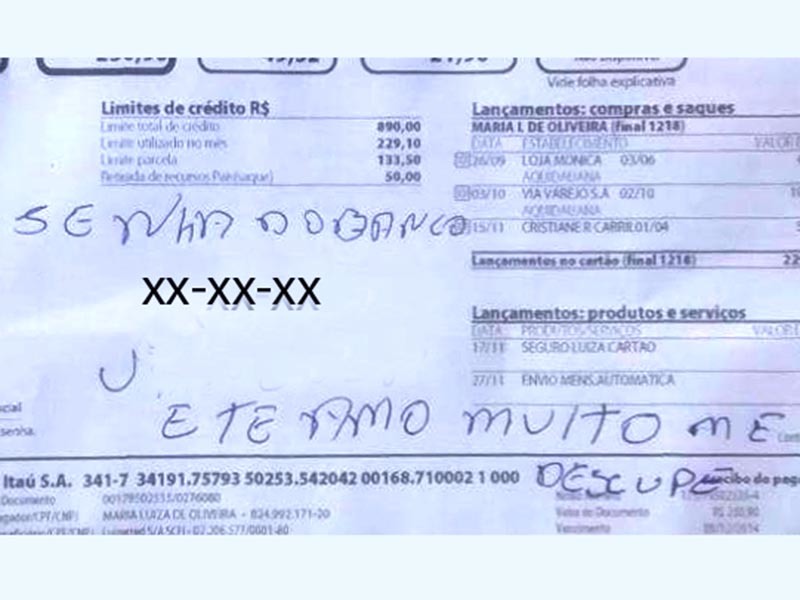 Vide folha explicativa
Limites de crédito R$
Limite total de crédito 890,00
Limite utilizado no mês 229,10
Limite parcela 133,50
Retirada de recursos País (saque) 50,00
Lançamentos: compras e saques
MARIA L DE OLIVEIRA (final 1218)
DATA ESTABELECIMENTO VALOR
26/09 LOJA MONICA 03/06
AQUIDAUANA
03/10 VIA VAREJO S.A 02/10
AQUIDAUANA
15/11 CRISTIANE R CARRIL 01/04
Lançamentos no cartão (final 1218) 22
SENHA DO BANCO
XX-XX-XX
Lançamentos: produtos e serviços
DATA PRODUTOS/SERVIÇOS VALOR
17/11 SEGURO LUIZA CARTAO
27/11 ENVIO MENS.AUTOMATICA
U
E TE AMO MUITO ME
DESCUPE
senha.
Itaú S.A. 341-7 34191.75793 50253.542042 00168.710002 1 000
Documento
MARIA LUIZA DE OLIVEIRA - 824.992.171-20
Valor do Documento
Vencimento